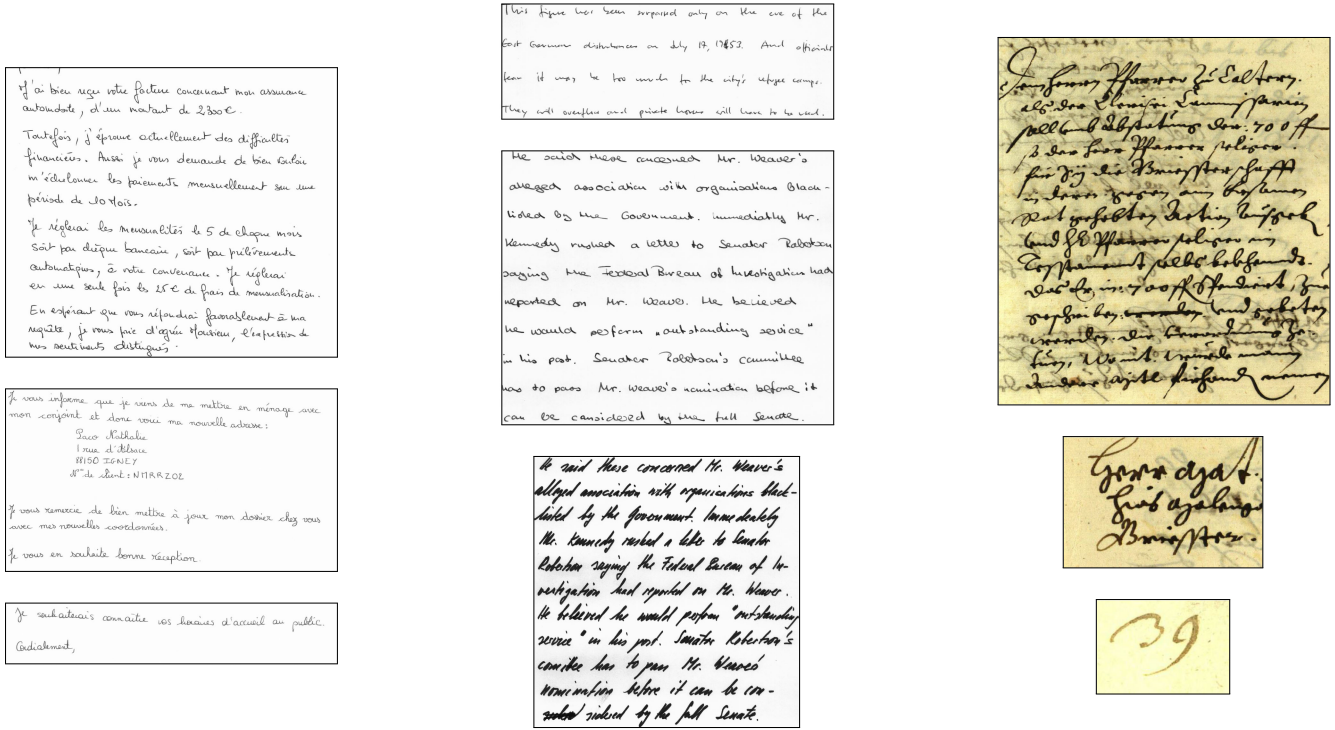 J'ai bien reçu votre facture concernant mon assurance
automobile, d'un montant de 2300€.
Toutefois, j'éprouve actuellement des difficultés
financières. Aussi je vous demande de bien vouloir
m'échelonner les paiements mensuellement sur une
période de 10 Mois.
Je réglerai les mensualités le 5 de chaque mois
soit par chèque bancaire, soit par prélèvements
automatiques, à votre convenance. Je réglerai
en une seule fois les 25€ de frais de mensualisation.
En espérant que vous répondrai favorablement à ma
requête, je vous prie d'agréer Monsieur, l'expression de
mes sentiments distingués.
Je vous informe que je viens de me mettre en ménage avec
mon conjoint et donc voici ma nouvelle adresse :
Paco Nathalie
1 rue d'Alsace
88150 IGNEY
N° de client : NMRRZ02
Je vous remercie de bien mettre à jour mon dossier chez vous
avec mes nouvelles coordonnées.
Je vous en souhaite bonne réception.
Je souhaiterais connaître vos horaires d'accueil au public.
Cordialement,
This figure has been surpassed only on the eve of the
East German disturbances on July 17, 1953. And officials
fear it may be too much for the city's refugee camps.
They will overflow and private homes will have to be used.
He said these concerned Mr. Weaver's
alleged association with organisations black-
listed by the Government. Immediately Mr.
Kennedy rushed a letter to Senator Robertson
saying the Federal Bureau of Investigation had
reported on Mr. Weaver. He believed
he would perform "outstanding service"
in his post. Senator Robertson's committee
has to pass Mr. Weaver's nomination before it
can be considered by the full Senate.
He said these concerned Mr. Weaver's
alleged association with organisations black-
listed by the Government. Immediately
Mr. Kennedy rushed a letter to Senator
Robertson saying the Federal Bureau of In-
vestigation had reported on Mr. Weaver.
He believed he would perform "outstanding
service" in his post. Senator Robertson's
comitee has to pass Mr. Weaver's
nomination before it can be con-
sidered by the full Senate.
herrn Pfarrer zu Caltern.
als der Clerisei Commissarien
der 700 ff
so der herr Pfarrer seliger
für die Briesterschafft
in deren gegen ein Ersamen
Rat gehebten Action
und Pfarrer seliger im
Tesstament selbs bekhendt.
das Er in 700 ff Spendiert,
geschriben werden und gebeten
werden. die
tuen, wo nit. wurde mann
nemen
herr
hies
Briesster.
39